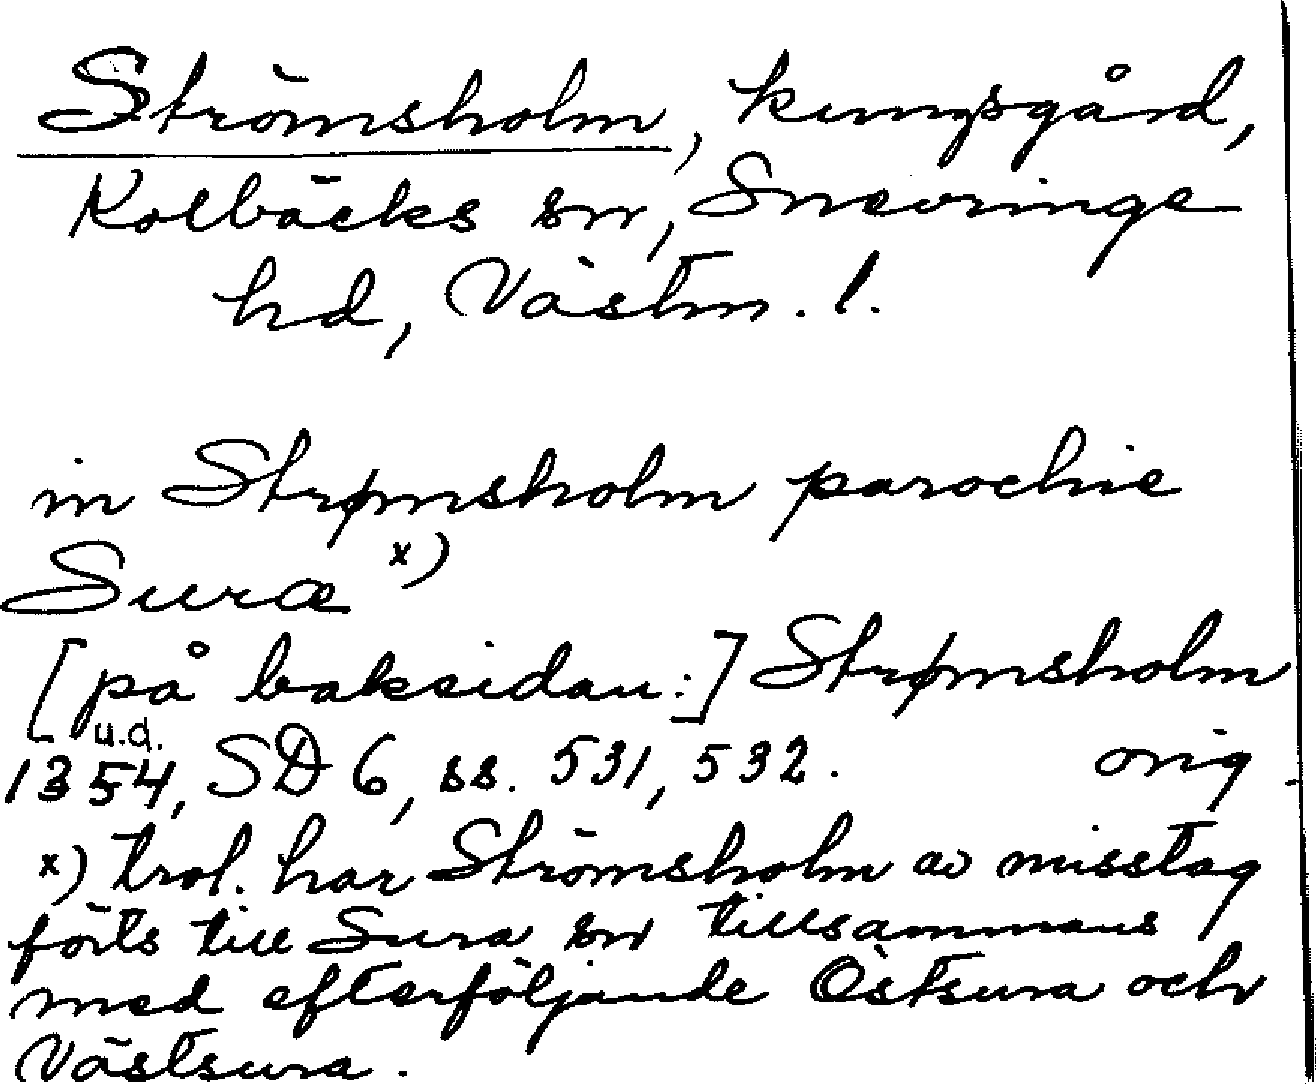 Strömsholm, kungsgård,
Kolbäcks sn, Snevringe
hd, Västm. l.
in Strømsholm parochie
Suræ x)
[på baksidan:] Strømsholm
u.d.
1354, SD 6, ss. 531, 532. orig.
x) trol. har Strömsholm av misstag
förts till Sura sn tillsammans
med efterföljande Östsura och
Västsura.